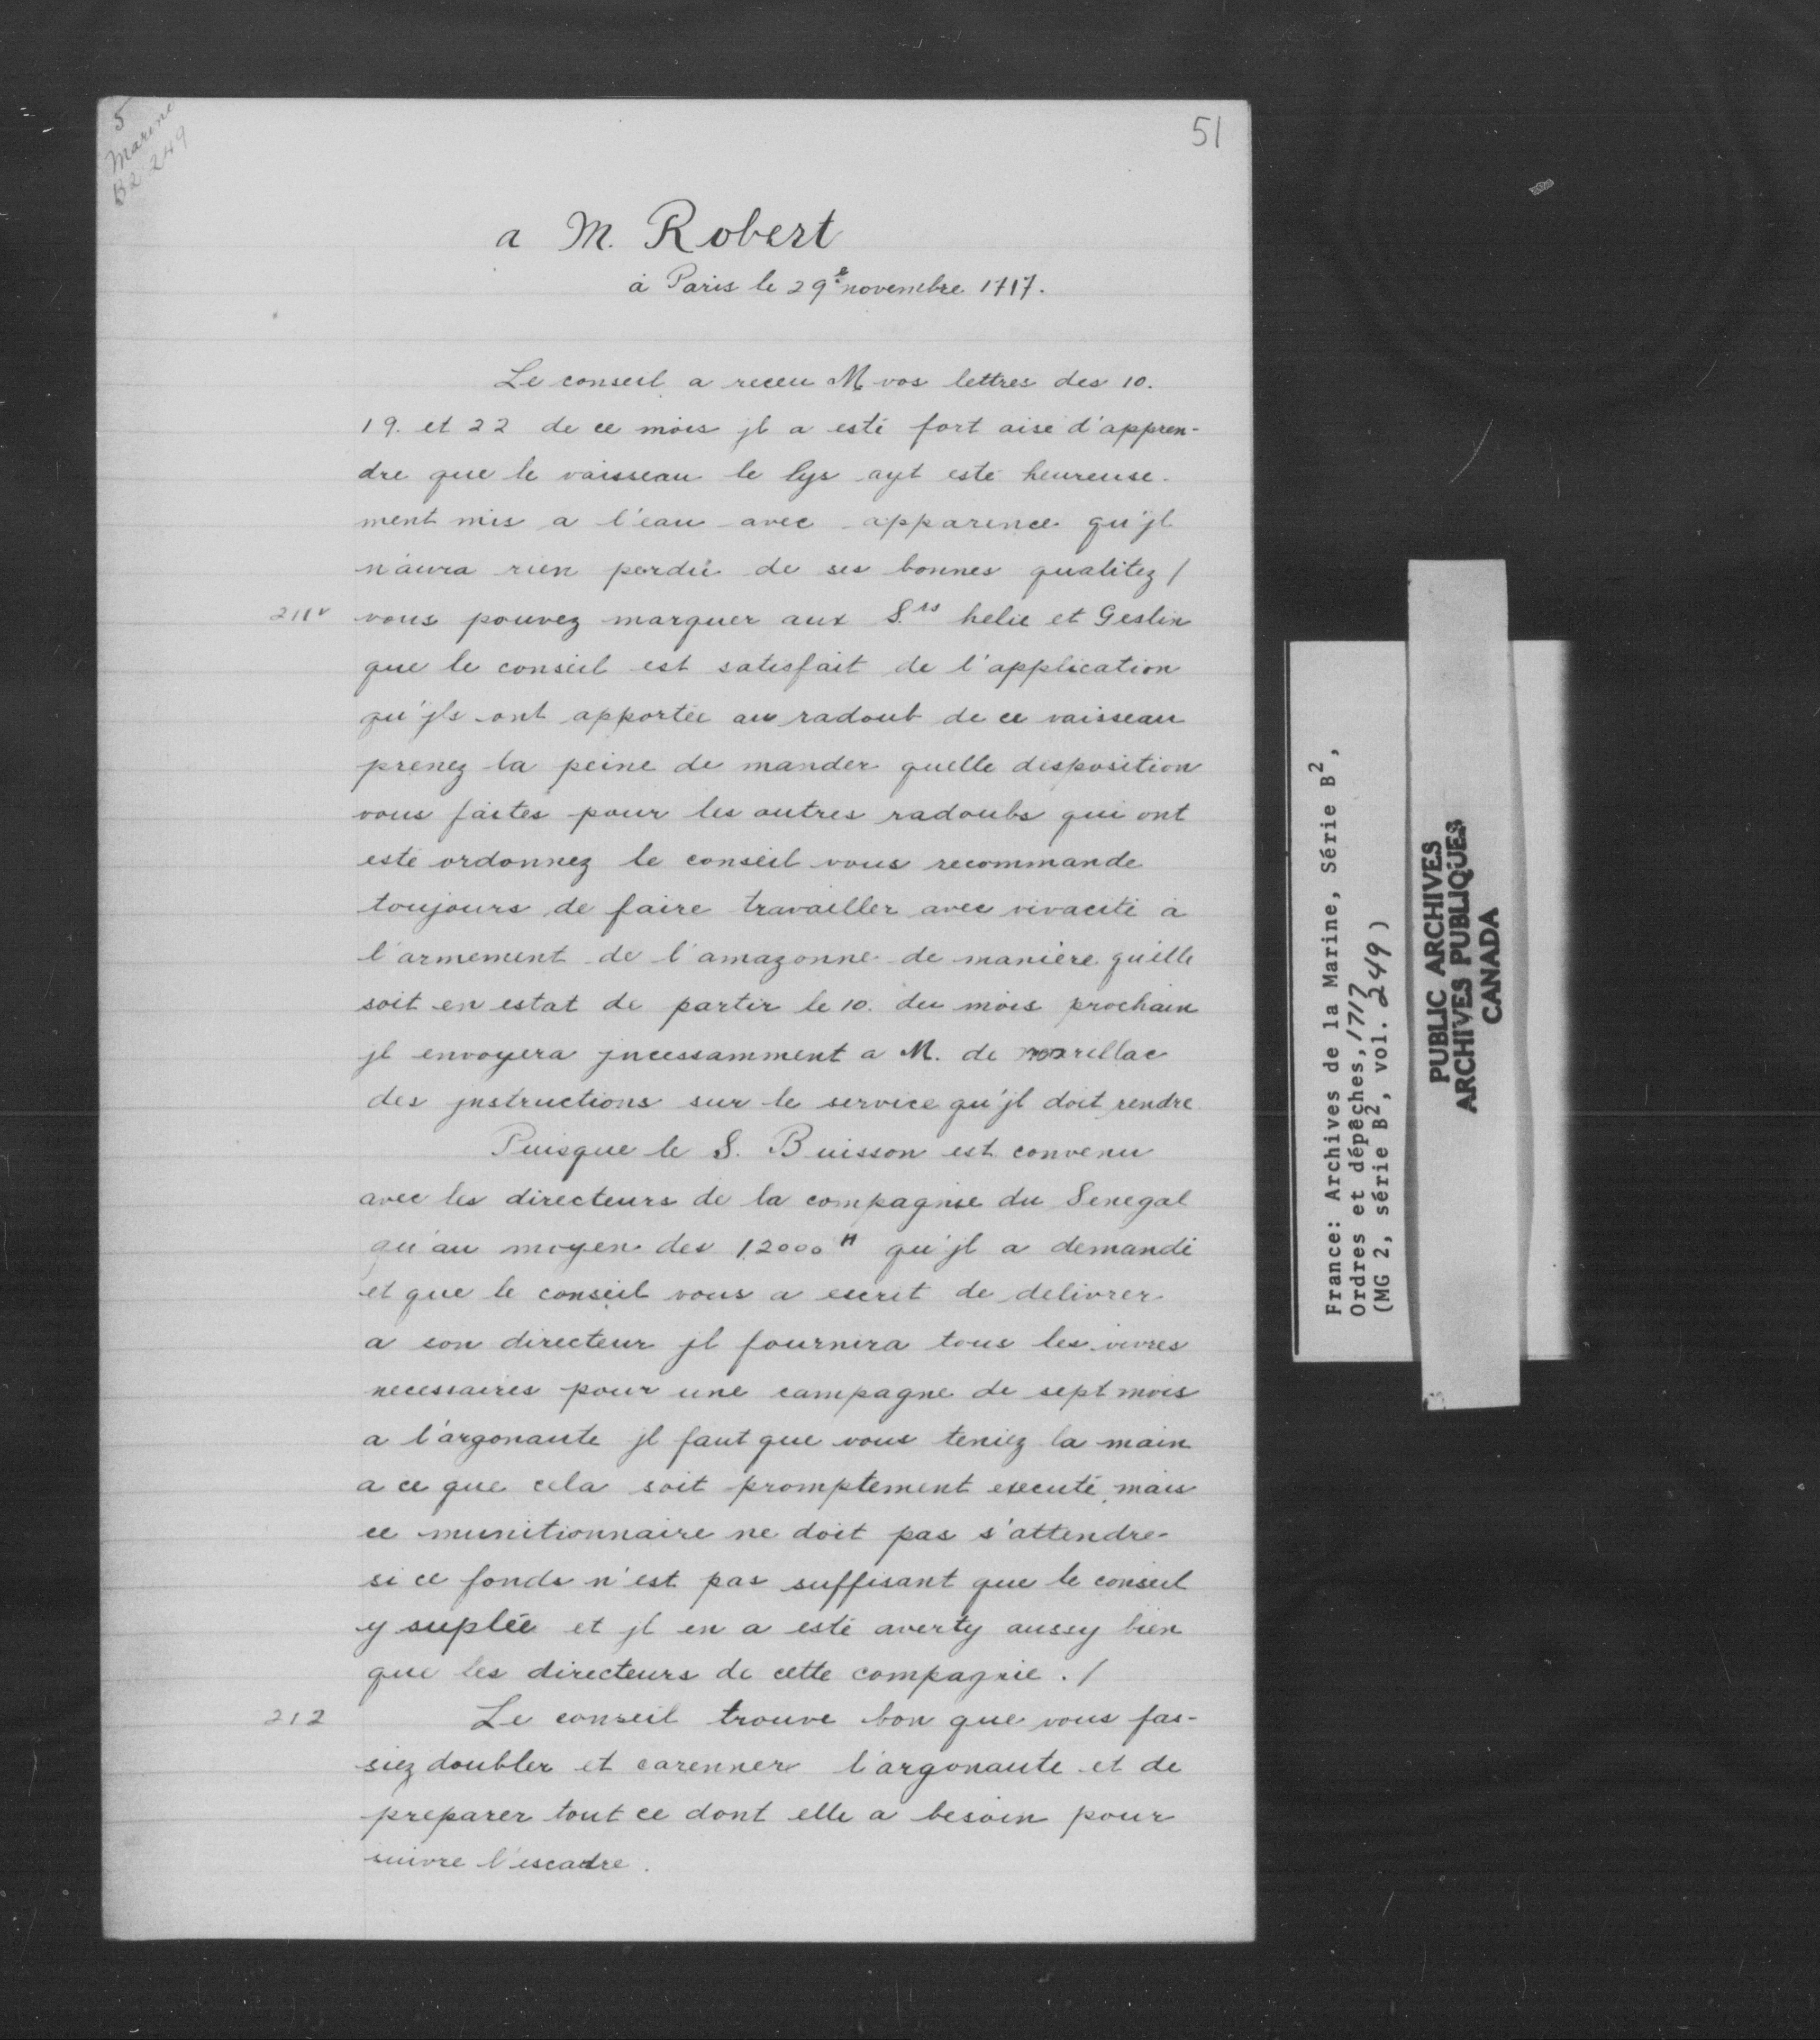 5
Marine
B2 249
51
a M. Robert
à Paris le 29e novembre 1717.
Le conseil a receu M vos lettres des 10.
19. et 22 de ce mois jl a esté fort aise d'appren-
dre que le vaisseau le lys ayt esté heureuse-
ment mis a l'eau avec apparence qu'jl
n'aura rien perdu de ses bonnes qualitez /
211v vous pouvez marquer aux S.rs helie et Geslin
que le conseil est satisfait de l'application
qu'jls ont apportée au radoub de ce vaisseau
prenez la peine de mander quelle disposition
vous faites pour les autres radoubs qui ont
esté ordonnez le conseil vous recommande
toujours de faire travailler avec vivacité a
l'armement de l'amazonne de manière qu'elle
soit en estat de partir le 10. du mois prochain
jl envoyera jncessamment a M. de marillac
des jnstructions sur le service qu'jl doit rendre
Puisque le S. Buisson est convenu
avec les directeurs de la compagnie du Senegal
qu'au moyen des 12000# qu'jl a demandé
et que le conseil vous a escrit de delivrer
a son directeur jl fournira tous les vivres
necessaires pour une campagne de sept mois
a l'argonaute jl faut que vous teniez la main
a ce que cela soit promptement executé mais
ce munitionnaire ne doit pas s'attendre
si ce fonds n'est pas suffisant que le conseil
y suplée et jl en a esté averty aussy bien
que les directeurs de cette compagnie. /
212 Le conseil trouve bon que vous fas-
siez doubler et carenner l'argonaute et de
preparer tout ce dont elle a besoin pour
suivre l'escadre.
France: Archives de la Marine, Série B2,
Ordres et dépêches, 1717
(MG 2, série B2, vol. 249)
PUBLIC ARCHIVES
ARCHIVES PUBLIQUES
CANADA